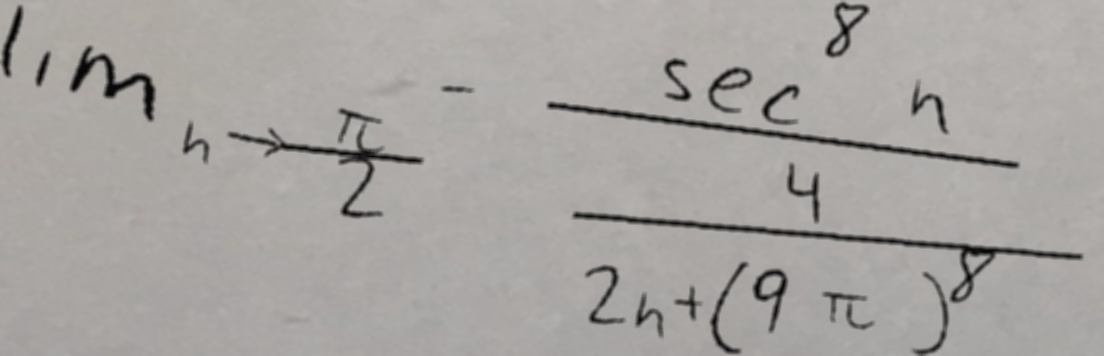 lim n→π/2⁻ sec⁸ n / 4 / 2n+(9π)⁸